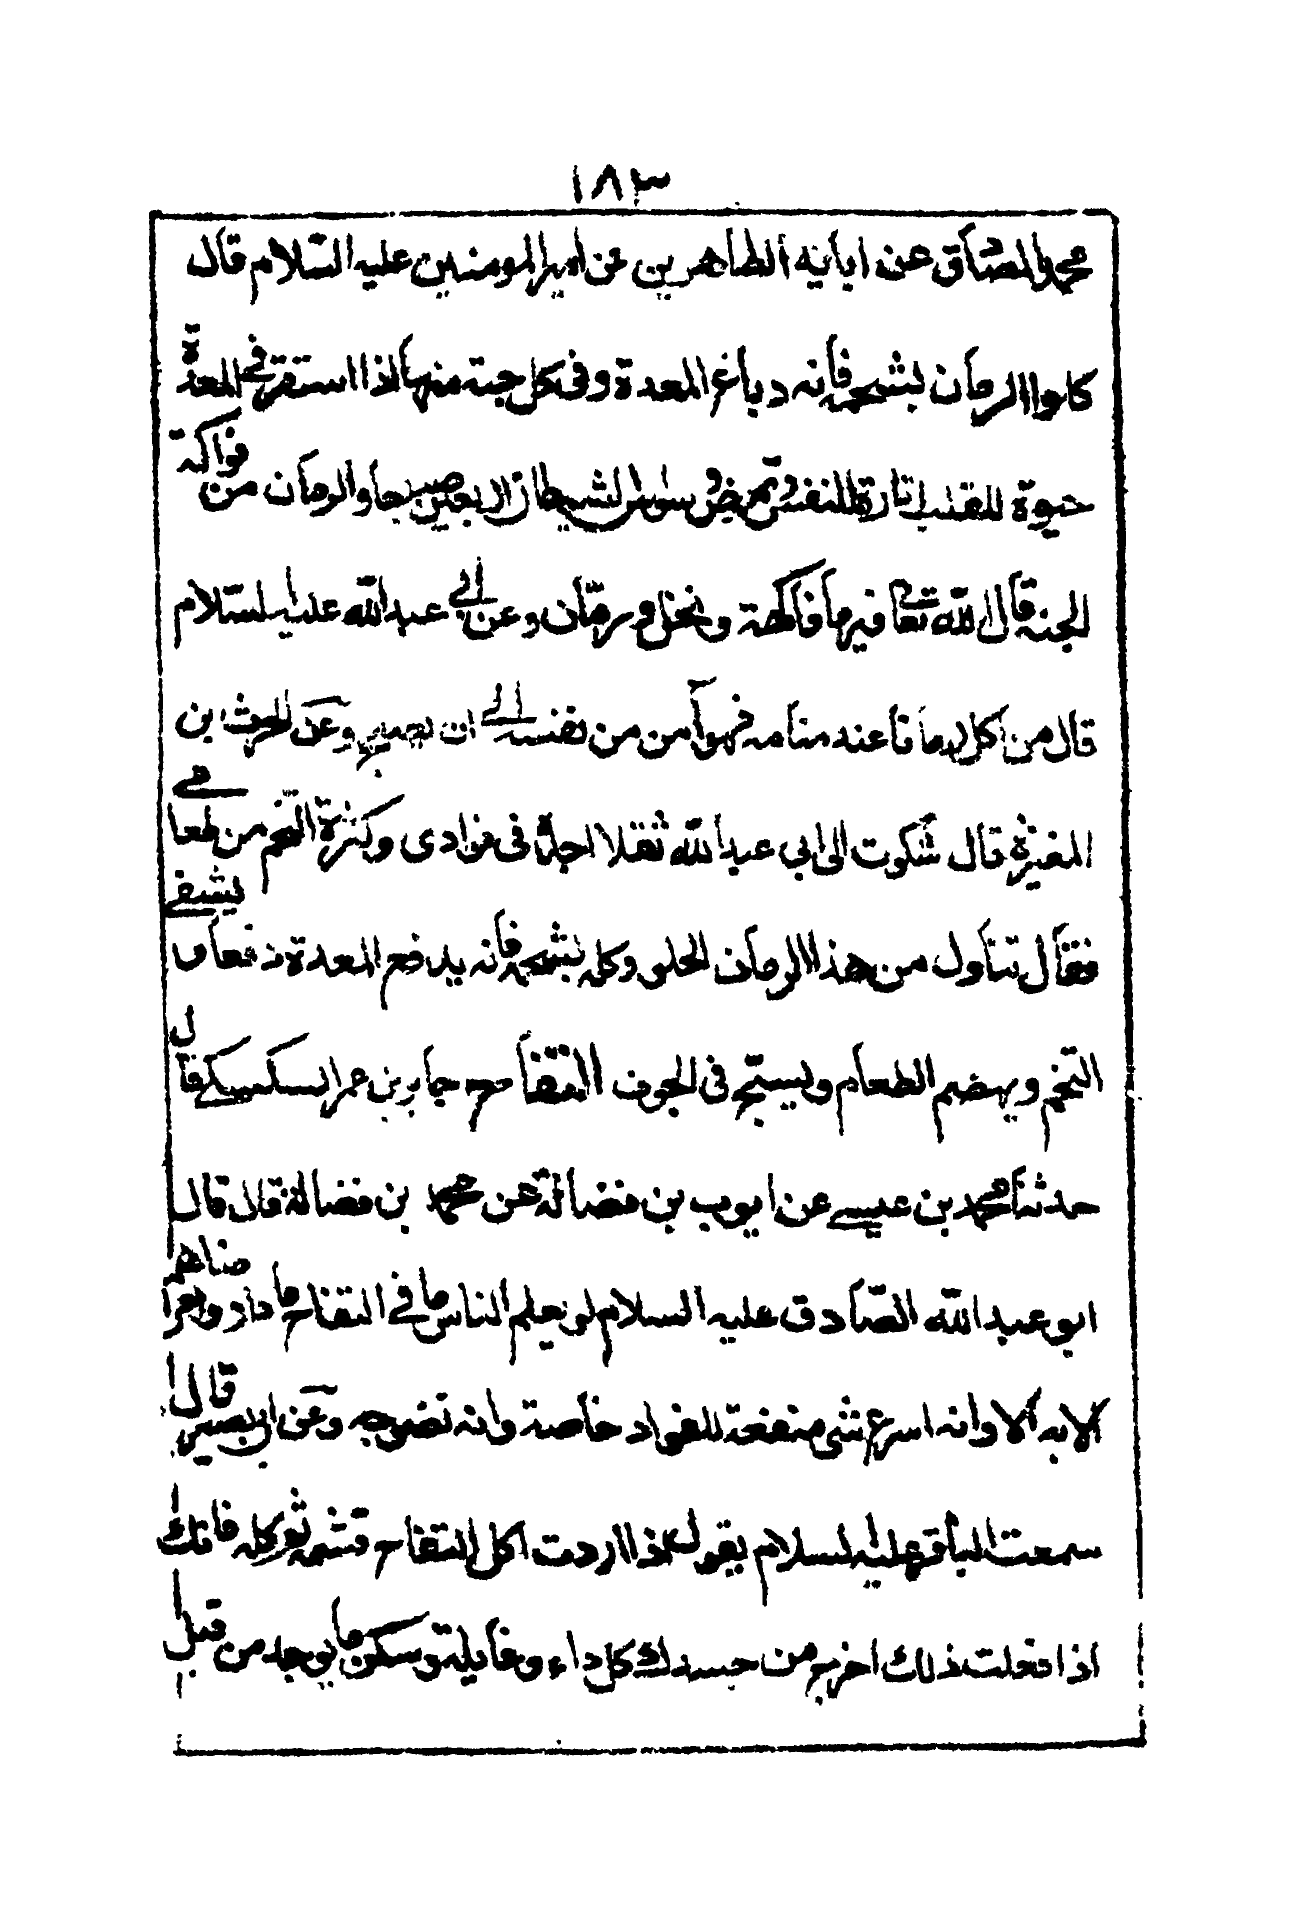 ١٨٣
محمد الصادق عن ابايه الطاهرين عن امير المومنين عليه السلام قال
كلوا الرمان بشحمه فانه دباغ المعدة وفى كل حبة منها اذا استقر في المعدة
حيوة للقلب انارة للنفس وتمرض وسواس الشيطان اربعين صباحا والرمان من فواكه
الجنة قال الله تعا فيهما فاكهة ونخل ورمان وعن ابي عبد الله عليه السلام
قال من اكل رمانا عند منامه فهو آمن من نفسه الى ان يصبح وعن الحرث بن
المغيرة قال شكوت الى ابي عبد الله ثقلا اجده في فوادى وكثرة التخم من طعامي
فقال تناول من هذا الرمان الحلو وكله بشحمه فانه يدفع المعدة دفعا ويشفي
التخم ويهضم الطعام ويسبّح فى الجوف التفاح جابر بن عمر السكسكي قال
حدثنا محمد بن عيسى عن ايوب بن فضالة عن محمد بن فضالة قال قال
ابو عبد الله الصادق عليه السلام لو يعلم الناس ما في التفاح ما داووا مرضاهم
الا به الا وانه اسرع شى منفعة للفواد خاصة وانه نضوجه وعن ابى بصير قال
سمعت الباقر عليه السلام يقول اذا اردت اكل التفاح فشمه ثم كله فانك
اذا فعلت ذلك اخرج من جسدك كل داء وغايلة وسكن ما يوجد من قبل